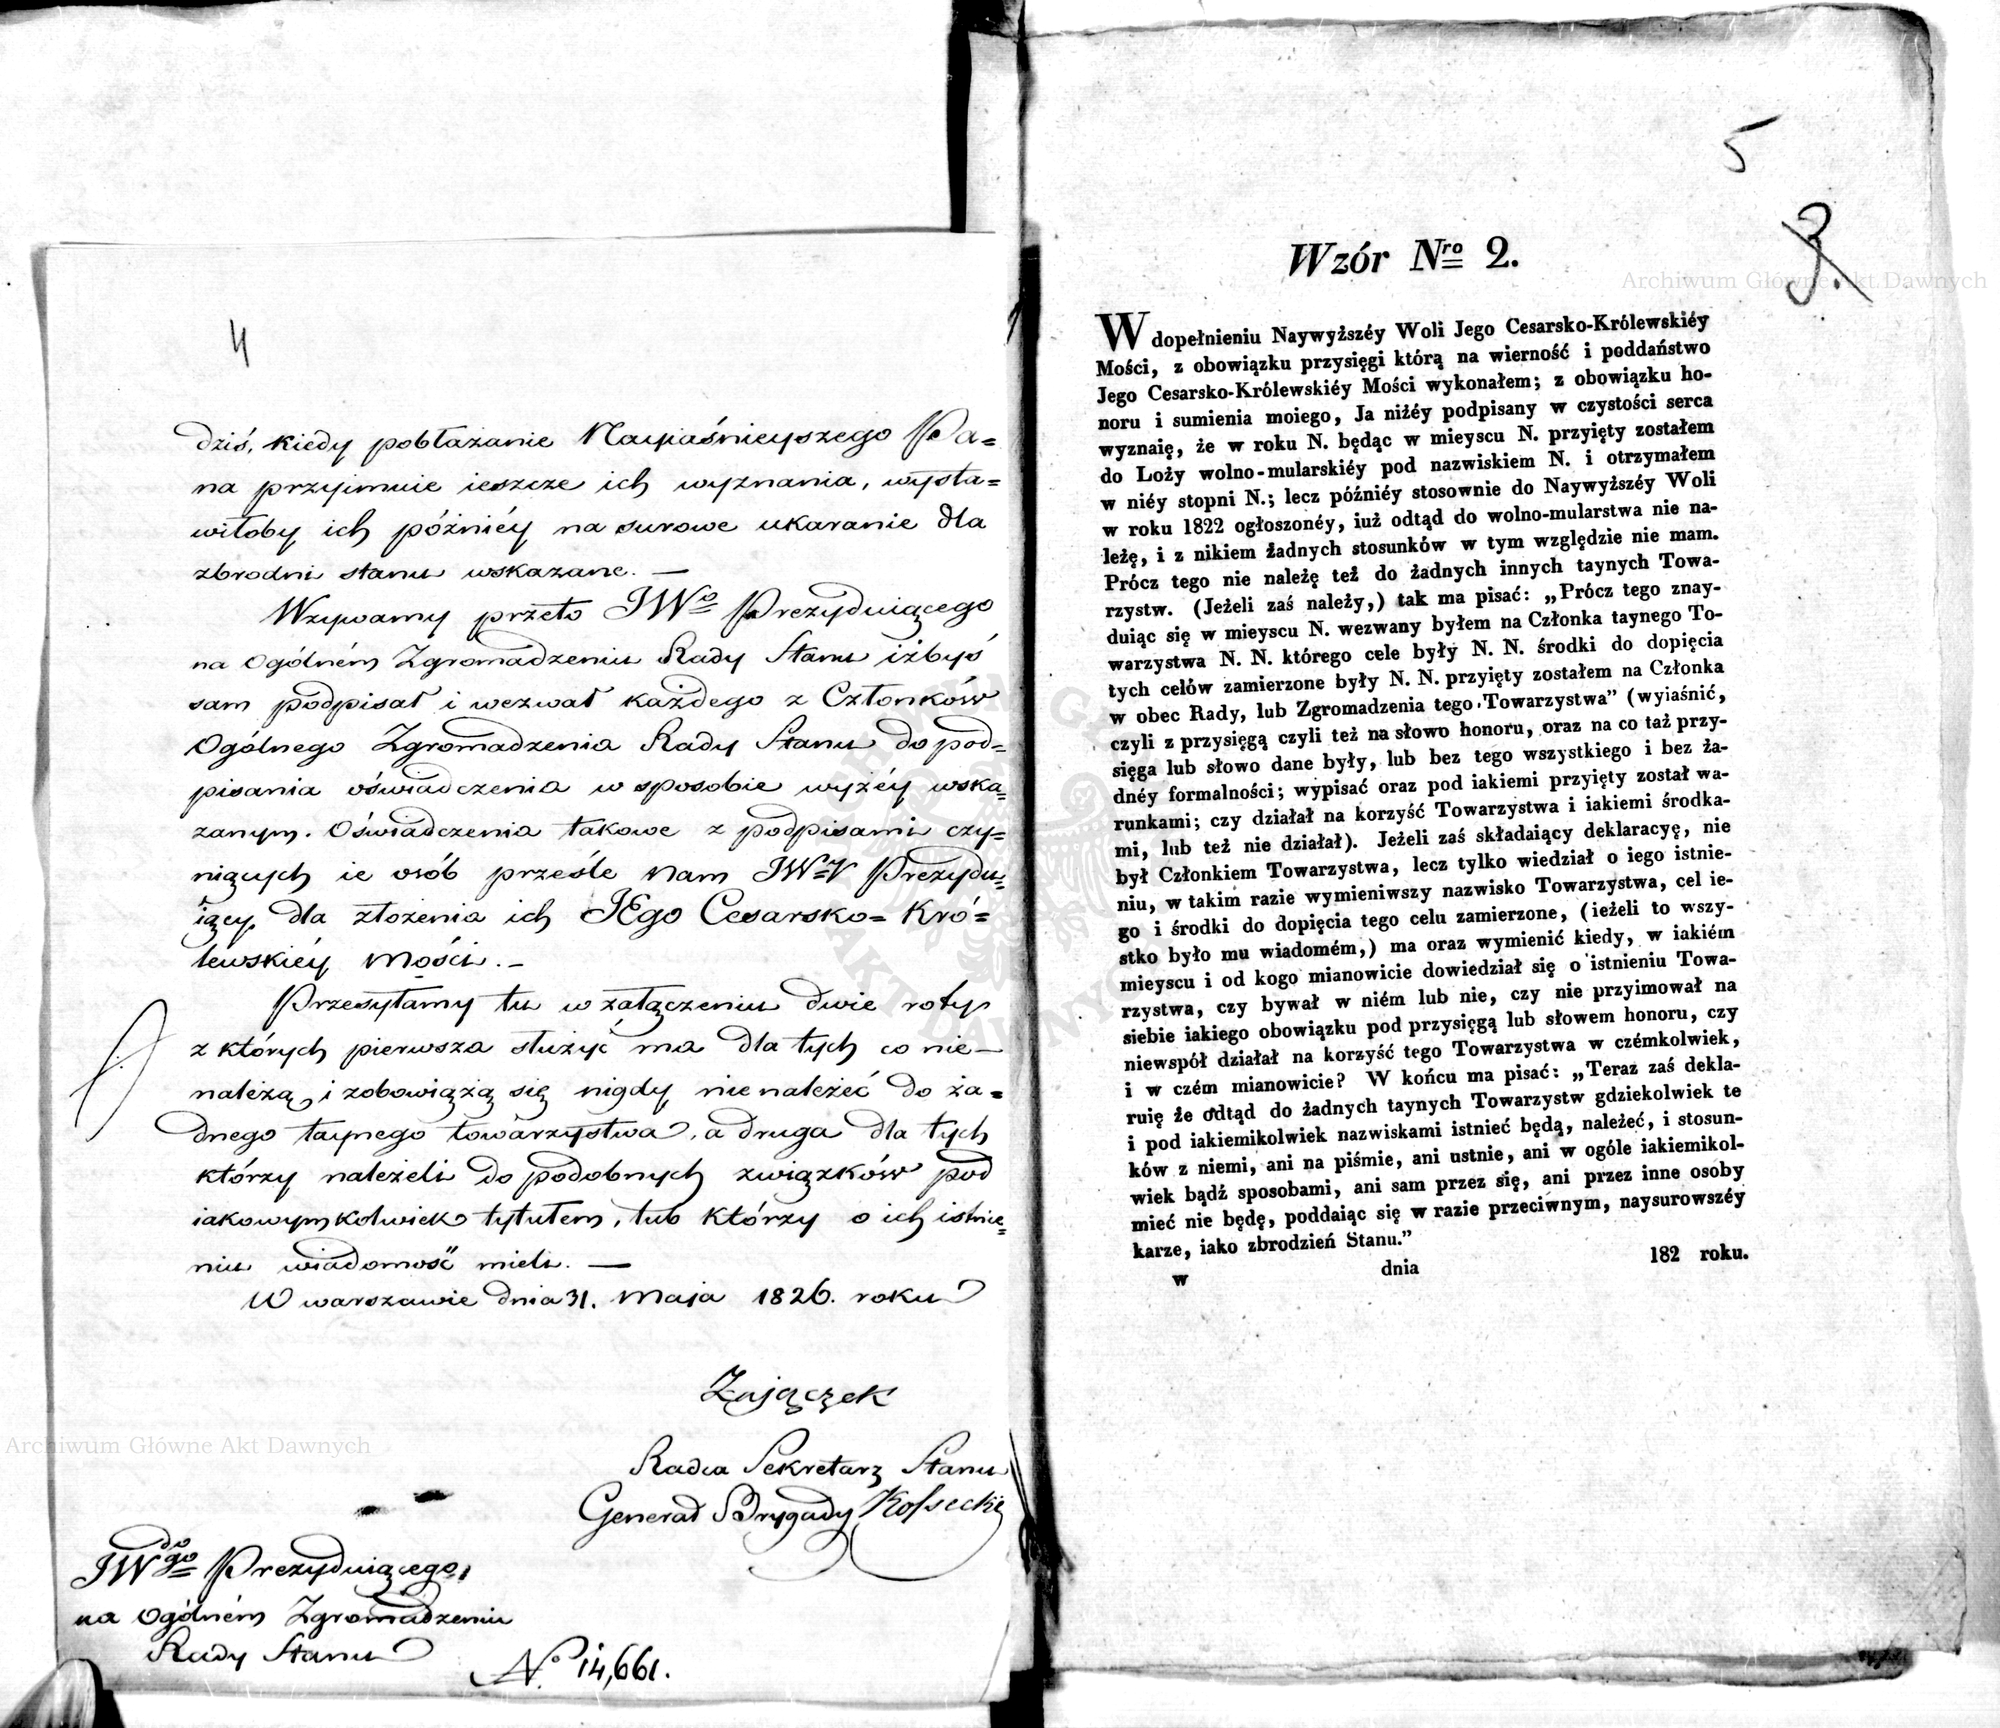 4
dziś, kiedy pobłażanie Nayiaśnieyszego Pa=
na przyimuie ieszcze ich wyznania, wysta=
wiłoby ich późniéy na surowe ukaranie dla
zbrodni stanu wskazane. —
Wzywamy przeto JWo Prezyduiącego
na Ogólném Zgromadzeniu Rady Stanu iżbyś
sam podpisał i wezwał każdego z Członków
Ogólnego Zgromadzenia Rady Stanu do pod=
pisania oświadczenia w sposobie wyżéy wska=
zanym. Oświadczenia takowe z podpisami czy=
niących ie osób prześle nam JWV Prezydu=
iący dla złożenia ich JEgo Cesarsko= Kró=
lewskiéy Mości. —
Przesyłamy tu w załączeniu dwie roty
z których pierwsza służyć ma dla tych co nie—
należą i zobowiążą się nigdy nie należeć do ża=
dnego taynego towarzystwa, a druga dla tych
którzy należeli do podobnych związków pod
iakowymkolwiek tytułem, lub którzy o ich istnie=
niu wiadomość mieli. —
W Warszawie dnia 31. Maja 1826. roku
Zajączek
Radca Sekretarz Stanu
Generał Brygady Kossecki
do
JWgo Prezyduiącego,
na Ogólném Zgromadzeniu
Rady Stanu
No. 14,661.
5
3.
Wzór Nro 2.
W dopełnieniu Naywyższéy Woli Jego Cesarsko-Królewskiéy
Mości, z obowiązku przysięgi którą na wierność i poddaństwo
Jego Cesarsko-Królewskiéy Mości wykonałem; z obowiązku ho-
noru i sumienia moiego, Ja niżéy podpisany w czystości serca
wyznaię, że w roku N. będąc w mieyscu N. przyięty zostałem
do Loży wolno-mularskiéy pod nazwiskiem N. i otrzymałem
w niéy stopni N.; lecz późniéy stosownie do Naywyższéy Woli
w roku 1822 ogłoszonéy, iuż odtąd do wolno-mularstwa nie na-
leżę, i z nikiem żadnych stosunków w tym względzie nie mam.
Prócz tego nie należę też do żadnych innych taynych Towa-
rzystw. (Jeżeli zaś należy,) tak ma pisać: „Prócz tego znay-
duiąc się w mieyscu N. wezwany byłem na Członka taynego To-
warzystwa N. N. którego cele były N. N. środki do dopięcia
tych celów zamierzone były N. N. przyięty zostałem na Członka
w obec Rady, lub Zgromadzenia tego Towarzystwa” (wyiaśnić,
czyli z przysięgą czyli też na słowo honoru, oraz na co taż przy-
sięga lub słowo dane były, lub bez tego wszystkiego i bez ża-
dnéy formalności; wypisać oraz pod iakiemi przyięty został wa-
runkami; czy działał na korzyść Towarzystwa i iakiemi środka-
mi, lub też nie działał). Jeżeli zaś składaiący deklaracyę, nie
był Członkiem Towarzystwa, lecz tylko wiedział o iego istnie-
niu, w takim razie wymieniwszy nazwisko Towarzystwa, cel ie-
go i środki do dopięcia tego celu zamierzone, (ieżeli to wszy-
stko było mu wiadomém,) ma oraz wymienić kiedy, w iakiém
mieyscu i od kogo mianowicie dowiedział się o istnieniu Towa-
rzystwa, czy bywał w niém lub nie, czy nie przyimował na
siebie iakiego obowiązku pod przysięgą lub słowem honoru, czy
niewspół działał na korzyść tego Towarzystwa w czémkolwiek,
i w czém mianowicie? W końcu ma pisać: „Teraz zaś dekla-
ruię że odtąd do żadnych taynych Towarzystw gdziekolwiek te
i pod iakiemikolwiek nazwiskami istnieć będą, należeć, i stosun-
ków z niemi, ani na piśmie, ani ustnie, ani w ogóle iakiemikol-
wiek bądź sposobami, ani sam przez się, ani przez inne osoby
mieć nie będę, poddaiąc się w razie przeciwnym, naysurowszéy
karze, iako zbrodzień Stanu.”
w dnia 182 roku.
Archiwum Główne Akt Dawnych
Archiwum Główne Akt Dawnych